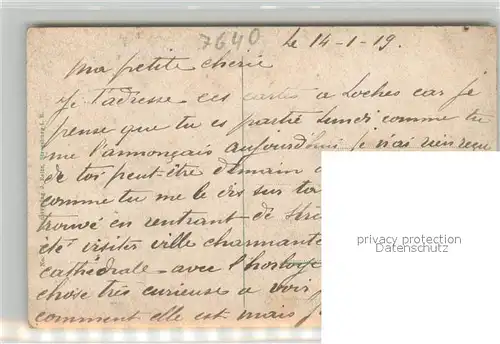 7640
le 14-1-19.
Ma petite chérie
Je t'adresse ces cartes a Loches car je
pense que tu es partie Lundi comme tu
me l'annonçais aujourd'hui je n'ai rien reçu
de toi peut-être demain
comme tu me le dis sur ta
trouvé en rentrant de
été visiter ville charmante
cathédrale avec l'horloge
chose très curieuse a voir
comment elle est mais
privacy protection
www.ansichtskarten-lexikon.de